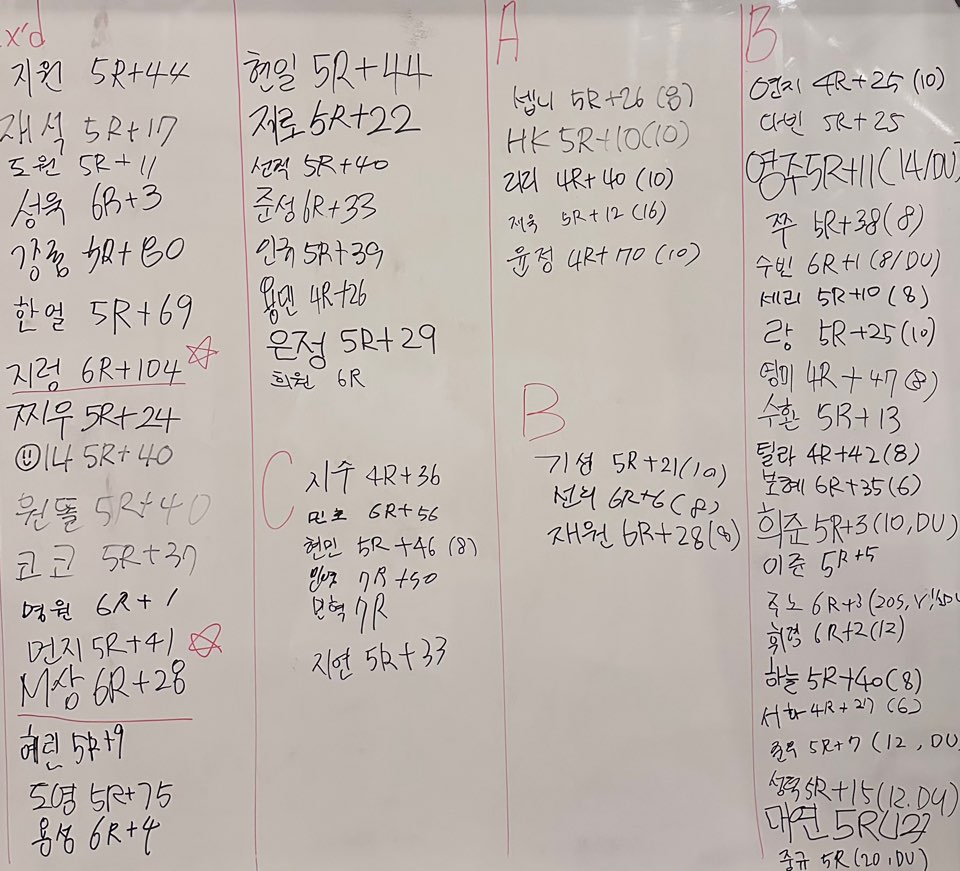 x'd
지원 5R+44
재석 5R+17
도원 5R+11
성욱 6R+3
5R+80
한얼 5R+69
지렁 6R+104
찌우 5R+24
이나 5R+40
원똘 5R+40
코코 5R+37
영원 6R+1
먼지 5R+41
M상 6R+28
혜린 5R+9
도영 5R+75
용성 6R+4
현일 5R+44
저로 5R+22
선적 5R+40
준성 6R+33
인규 5R+39
용덴 4R+26
은정 5R+29
희원 6R
C
지수 4R+36
민호 6R+56
현민 5R+46 (8)
7R+50
민혁 7R
지연 5R+33
A
셉니 5R+26 (8)
HK 5R+10 (10)
리리 4R+40 (10)
재욱 5R+12 (16)
윤정 4R+70 (10)
B
기성 5R+21 (10)
선의 6R+6 (8)
재원 6R+28 (8)
B
연지 4R+25 (10)
다빈 5R+25
영주 5R+11 (14/DU)
쭈 5R+38 (8)
수빈 6R+1 (8/DU)
세리 5R+10 (8)
랑 5R+25 (10)
영미 4R+47 (8)
수환 5R+13
틸라 4R+42 (8)
보혜 6R+35 (6)
희준 5R+3 (10, DU)
이준 5R+5
주노 6R+3
휘력 6R+2 (12)
하늘 5R+40 (8)
서하 4R+27 (6)
5R+7 (12, DU)
성혁 5R+15 (12. DU)
대연 5R (12)
중규 5R (20, DU)